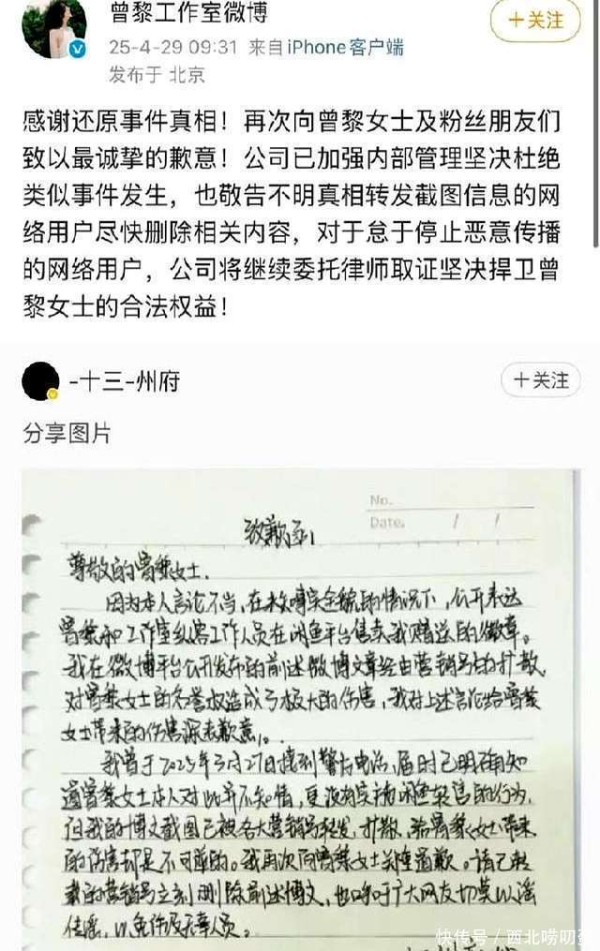 曾黎工作室微博
+关注
25-4-29 09:31 来自 iPhone客户端
发布于 北京
感谢还原事件真相！再次向曾黎女士及粉丝朋友们
致以最诚挚的歉意！公司已加强内部管理坚决杜绝
类似事件发生，也敬告不明真相转发截图信息的网
络用户尽快删除相关内容，对于怠于停止恶意传播
的网络用户，公司将继续委托律师取证坚决捍卫曾
黎女士的合法权益！
-十三-州府
+关注
分享图片
No.
Date. / /
致歉函
尊敬的曾黎女士.
因为本人言论不当，在未窥得全貌的情况下，公开表达
曾黎和工作室纵容工作人员在闲鱼平台售卖我赠送的徽章。
我在微博平台公开发布的前述微博文章经由营销号的扩散，
对曾黎女士的名誉权造成了极大的伤害，我对上述言论给曾黎
女士带来的伤害深表歉意。
我曾于2025年3月27日接到警方电话，届时已明确知
道曾黎女士本人对此并不知情，更没有实施闲鱼转售的行为
但我的博文截图已被各大营销号转发，扩散，给曾黎女士带来
的伤害却是不可逆的。我再次向曾黎女士关注道歉。请已转
载的营销号立刻删除前述博文，也呼吁广大网友切莫以谣
传谣，以免伤及无辜人员。
快传号／西北唠叨蛋